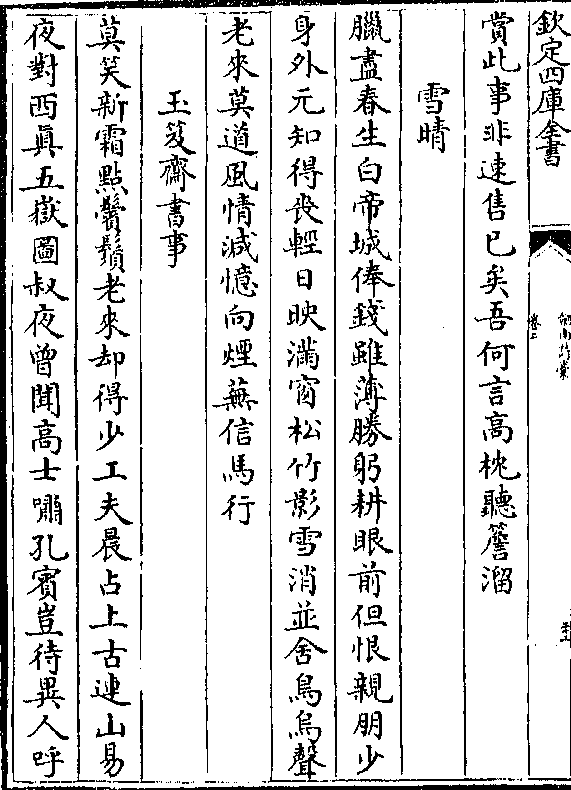 欽定四庫全書
賞此事非速售已矣吾何言高枕聽簷溜
雪晴
臘盡春生白帝城俸錢雖薄勝躬耕眼前但恨親朋少
身外元知得喪輕日映滿窗松竹影雪消並舍烏烏聲
老來莫道風情減憶向煙蕪信馬行
玉笈齋書事
莫笑新霜點鬢鬚老來却得少工夫晨占上古連山易
夜對西真五嶽圖叔夜曾聞高士嘯孔賓豈待異人呼